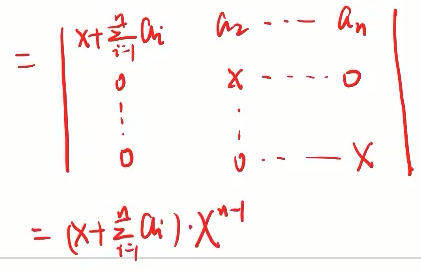 = | x+∑ⁿᵢ₌₁ aᵢ a₂ ---- aₙ |
0 x ---- 0
⋮ ⋮
0 0 ---- x
= (x+∑ⁿᵢ₌₁ aᵢ)·xⁿ⁻¹